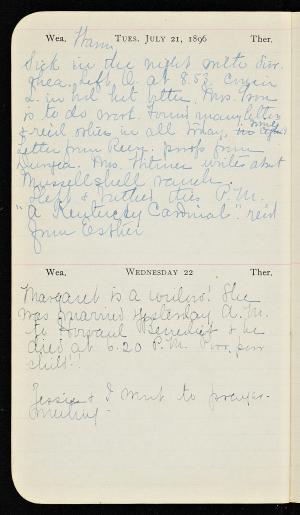 Wea. Warm TUES. JULY 21, 1896 Ther.
Sick in the night with diar-
rhea. Left O. at 8.53. Cousin
L. in bed but better. Mrs.
is to do work. Found many letters
& rec'd others in all
Letter from Reery. proofs from
Mrs. writes about
Musselshell ranch.
Slept & bathed this P.M.
"A Kentucky Cardinal" rec'd
from Esther
Wea. WEDNESDAY 22 Ther.
Margaret is a widow! She
was married yesterday A.M.
to Howard Benedict & he
died at 6.20 P.M. Poor, poor
child!!
Jessica & I went to prayer-
meeting.